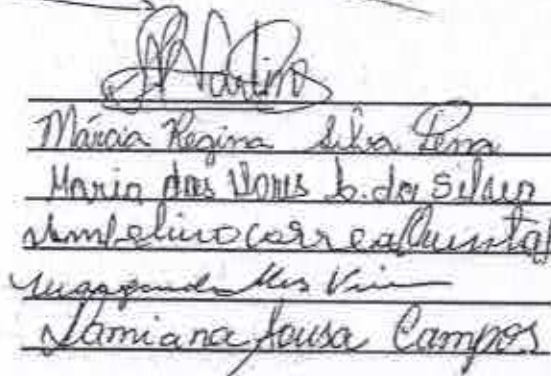 Martins
Márcia Regina Silva Pena
Maria das Dores S. da Silva
Ampelino correa Quintal
Damiana Sousa Campos